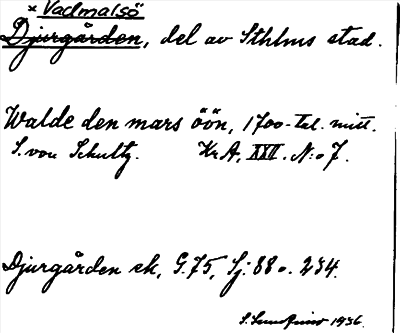 × Vadmalsö
Djurgården, del av Sthlms stad.
Walde den mars öön, 1700-tal. mitt.
S. von Schultz. Kr A, XXII. N:o 7.
Djurgården sk, G. 75, Sj: 88 o. 234.
S. 1936.